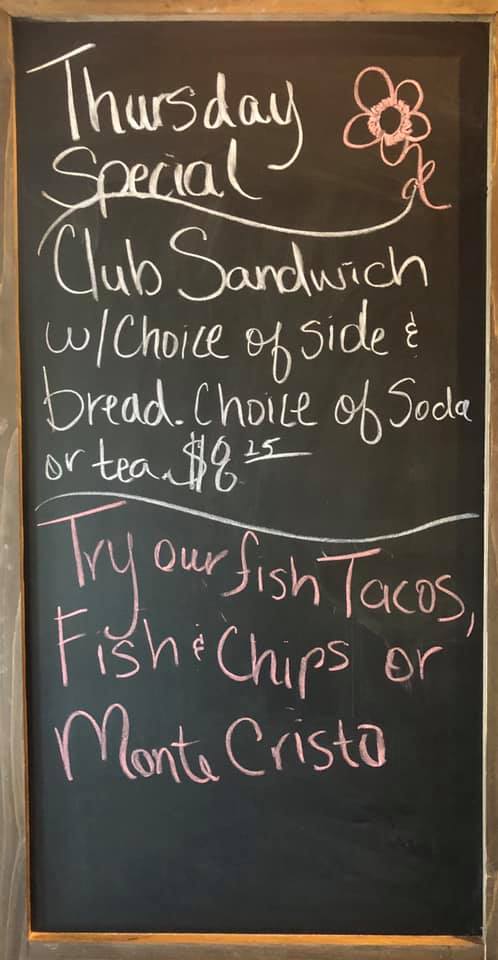 Thursday
Special
Club Sandwich
w/Choice of side &
bread. Choice of Soda
or tea. $8 25
Try our fish Tacos,
Fish & Chips or
Monte Cristo